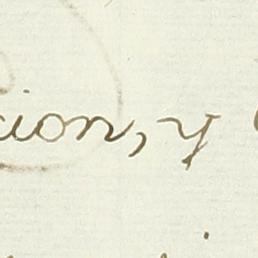 cion, y